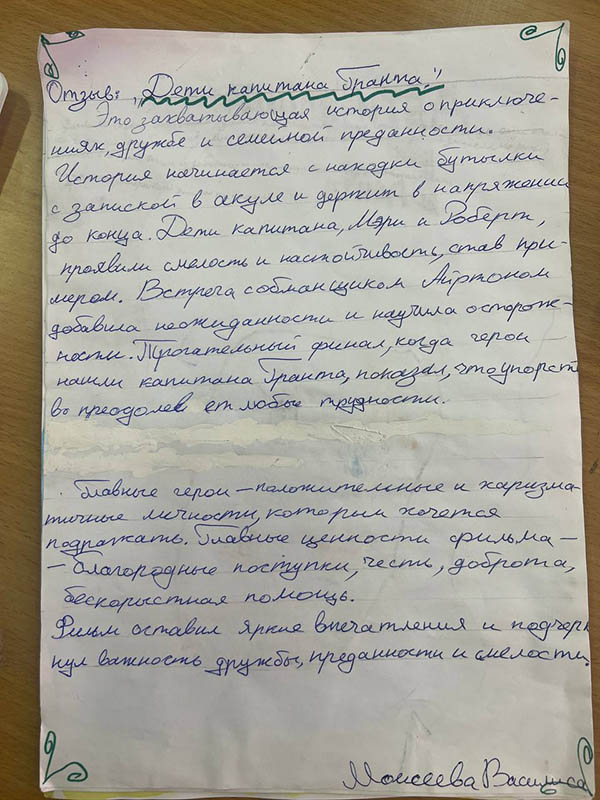 Отзыв: „Дети капитана Гранта."
Это захватывающая история о приключе-
ниях, дружбе и семейной преданности.
История начинается с находки бутылки
с запиской в акуле и держит в напряжении
до конца. Дети капитана, Мэри и Роберт,
проявили смелость и настойчивость, став при-
мером. Встреча с обманщиком Айртоном
добавила неожиданности и научила осторож-
ности. Трогательный финал, когда герои
нашли капитана Гранта, показал, что упорст
во преодолевает любые трудности.
Главные герои – положительные и харизма-
тичные личности, которым хочется
подражать. Главные ценности фильма –
– благородные поступки, честь, доброта,
бескорыстная помощь.
Фильм оставил яркие впечатления и подчерк
нул важность дружбы, преданности и смелости.
Моисеева Василиса